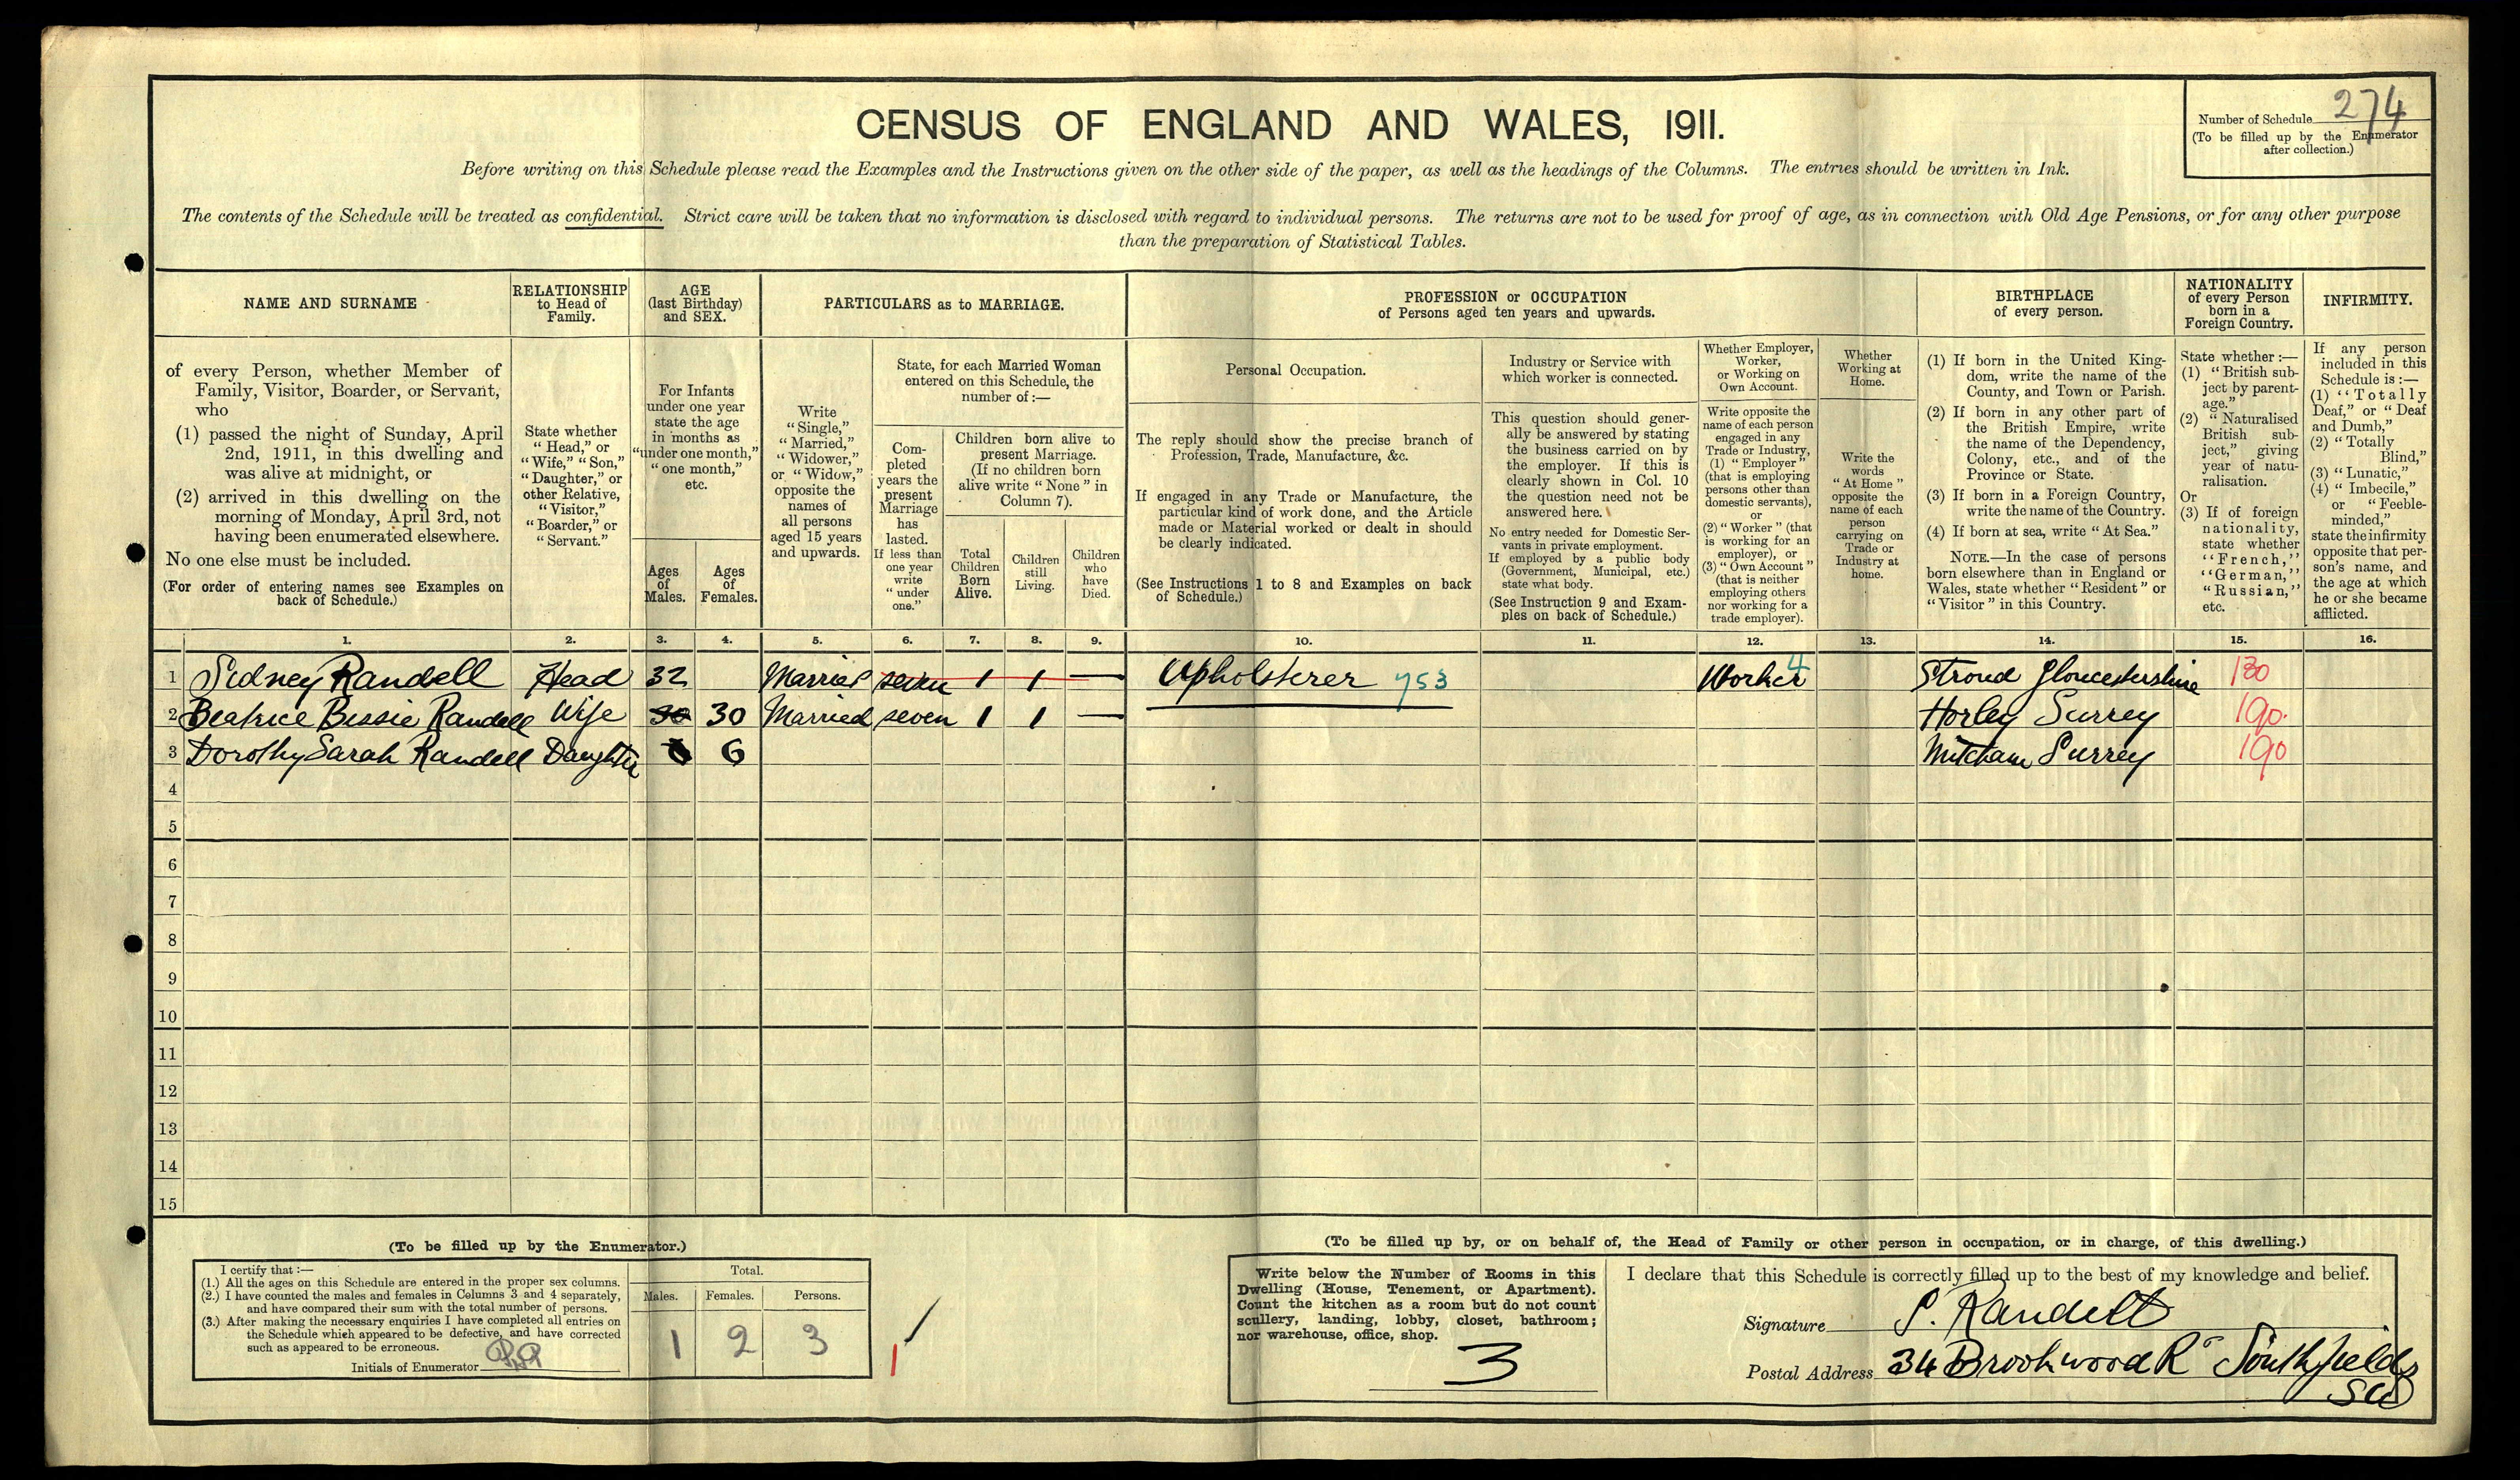 CENSUS OF ENGLAND AND WALES, 1911.
Number of Schedule 274
(To be filled up by the Enumerator
after collection.)
Before writing on this Schedule please read the Examples and the Instructions given on the other side of the paper, as well as the headings of the Columns. The entries should be written in Ink.
The contents of the Schedule will be treated as confidential. Strict care will be taken that no information is disclosed with regard to individual persons. The returns are not to be used for proof of age, as in connection with Old Age Pensions, or for any other purpose
than the preparation of Statistical Tables.
NAME AND SURNAME
of every Person, whether Member of
Family, Visitor, Boarder, or Servant,
who
(1) passed the night of Sunday, April
2nd, 1911, in this dwelling and
was alive at midnight, or
(2) arrived in this dwelling on the
morning of Monday, April 3rd, not
having been enumerated elsewhere.
No one else must be included.
(For order of entering names see Examples on
back of Schedule.)
RELATIONSHIP
to Head of
Family.
State whether
"Head," or
"Wife," "Son,"
"Daughter," or
other Relative,
"Visitor,"
"Boarder," or
"Servant."
AGE
(last Birthday)
and SEX.
For Infants
under one year
state the age
in months as
"under one month,"
"one month,"
etc.
Ages
of
Males.
Ages
of
Females.
PARTICULARS as to MARRIAGE.
Write
"Single,"
"Married,"
"Widower,"
or "Widow,"
opposite the
names of
all persons
aged 15 years
and upwards.
State, for each Married Woman
entered on this Schedule, the
number of:—
Com-
pleted
years the
present
Marriage
has
lasted.
If less than
one year
write
"under
one."
Children born alive to
present Marriage.
(If no children born
alive write "None" in
Column 7).
Total
Children
Born
Alive.
Children
still
Living.
Children
who
have
Died.
PROFESSION or OCCUPATION
of Persons aged ten years and upwards.
Personal Occupation.
The reply should show the precise branch of
Profession, Trade, Manufacture, &c.
If engaged in any Trade or Manufacture, the
particular kind of work done, and the Article
made or Material worked or dealt in should
be clearly indicated.
(See Instructions 1 to 8 and Examples on back
of Schedule.)
Industry or Service with
which worker is connected.
This question should gener-
ally be answered by stating
the business carried on by
the employer. If this is
clearly shown in Col. 10
the question need not be
answered here.
No entry needed for Domestic Ser-
vants in private employment.
If employed by a public body
(Government, Municipal, etc.)
state what body.
(See Instruction 9 and Exam-
ples on back of Schedule.)
Whether Employer,
Worker,
or Working on
Own Account.
Write opposite the
name of each person
engaged in any
Trade or Industry,
(1) "Employer"
(that is employing
persons other than
domestic servants),
or
(2) "Worker" (that
is working for an
employer), or
(3) "Own Account"
(that is neither
employing others
nor working for a
trade employer).
Whether
Working at
Home.
Write the
words
"At Home"
opposite the
name of each
person
carrying on
Trade or
Industry at
home.
BIRTHPLACE
of every person.
(1) If born in the United King-
dom, write the name of the
County, and Town or Parish.
(2) If born in any other part of
the British Empire, write
the name of the Dependency,
Colony, etc., and of the
Province or State.
(3) If born in a Foreign Country,
write the name of the Country.
(4) If born at sea, write "At Sea."
NOTE.—In the case of persons
born elsewhere than in England or
Wales, state whether "Resident" or
"Visitor" in this Country.
NATIONALITY
of every Person
born in a
Foreign Country.
State whether:—
(1) "British sub-
ject by parent-
age."
(2) "Naturalised
British sub-
ject," giving
year of natu-
ralisation.
Or
(3) If of foreign
nationality,
state whether
"French,"
"German,"
"Russian,"
etc.
INFIRMITY.
If any person
included in this
Schedule is:—
(1) "Totally
Deaf," or "Deaf
and Dumb,"
(2) "Totally
Blind,"
(3) "Lunatic,"
(4) "Imbecile,"
or "Feeble-
minded,"
state the infirmity
opposite that per-
son's name, and
the age at which
he or she became
afflicted.
1. 2. 3. 4. 5. 6. 7. 8. 9. 10. 11. 12. 13. 14. 15. 16.
1 Sidney Randell Head 32 Married seven 1 1 — Upholsterer 753 Worker 4 Stroud Gloucestershire 130
2 Beatrice Bessie Randell Wife 30 30 Married seven 1 1 — Horley Surrey 190.
3 Dorothy Sarah Randell Daughter 6 6 Mitcham Surrey 190
4
5
6
7
8
9
10
11
12
13
14
15
(To be filled up by the Enumerator.)
I certify that:—
(1.) All the ages on this Schedule are entered in the proper sex columns.
(2.) I have counted the males and females in Columns 3 and 4 separately,
and have compared their sum with the total number of persons.
(3.) After making the necessary enquiries I have completed all entries on
the Schedule which appeared to be defective, and have corrected
such as appeared to be erroneous.
Initials of Enumerator
Total.
Males. Females. Persons.
1 2 3
1
(To be filled up by, or on behalf of, the Head of Family or other person in occupation, or in charge, of this dwelling.)
Write below the Number of Rooms in this
Dwelling (House, Tenement, or Apartment).
Count the kitchen as a room but do not count
scullery, landing, lobby, closet, bathroom;
nor warehouse, office, shop.
3
I declare that this Schedule is correctly filled up to the best of my knowledge and belief.
Signature S. Randell
Postal Address 34 Brookwood Rd Southfields
SW